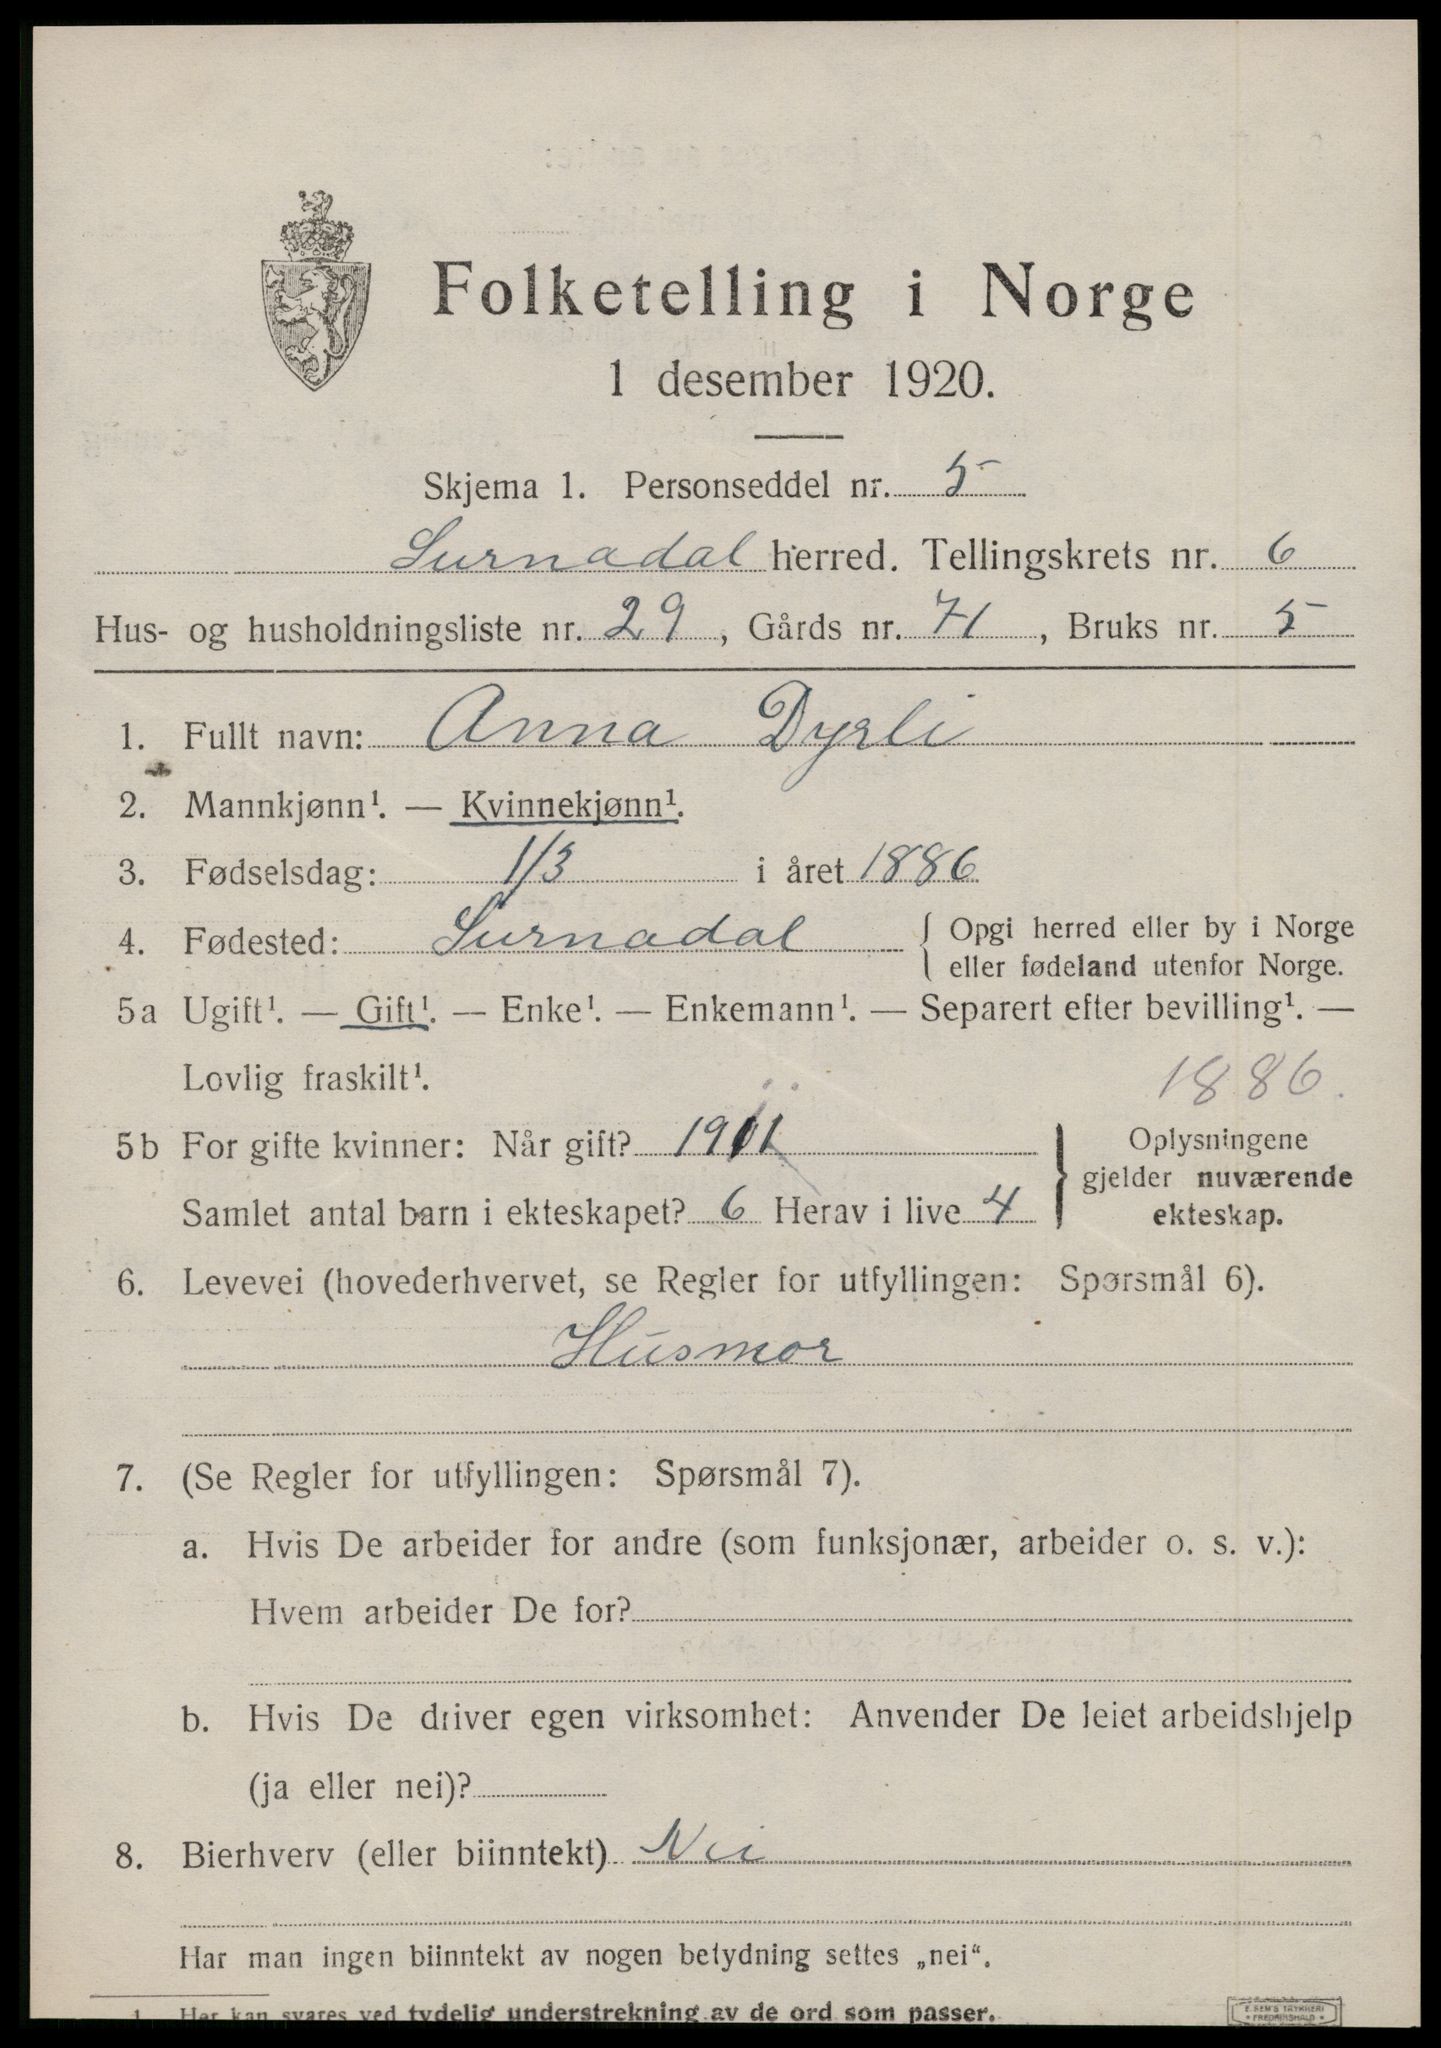 Folketelling i Norge
1 desember 1920.
Skjema 1. Personseddel nr. 5
Surnadal herred. Tellingskrets nr. 6
Hus- og husholdningsliste nr. 29, Gårds nr. 71, Bruks nr. 5
1. Fullt navn: Anna Dyrli
2. Mannkjønn¹. — Kvinnekjønn¹.
3. Fødselsdag: 1/3 i året 1886
4. Fødested: Surnadal { Opgi herred eller by i Norge
eller fødeland utenfor Norge.
5a Ugift¹. — Gift¹. — Enke¹. — Enkemann¹. — Separert efter bevilling¹. —
Lovlig fraskilt¹.
1886.
5b For gifte kvinner: Når gift? 1911
Samlet antal barn i ekteskapet? 6 Herav i live 4
} Oplysningene
gjelder nuværende
ekteskap.
6. Levevei (hovederhvervet, se Regler for utfyllingen: Spørsmål 6).
Husmor
7. (Se Regler for utfyllingen: Spørsmål 7).
a. Hvis De arbeider for andre (som funksjonær, arbeider o. s. v.):
Hvem arbeider De for?
b. Hvis De driver egen virksomhet: Anvender De leiet arbeidshjelp
(ja eller nei)?
8. Bierhverv (eller biinntekt) Nei
Har man ingen biinntekt av nogen betydning settes „nei“.
1 Her kan svares ved tydelig understrekning av de ord som passer.
E. SEM'S TRYKKERI
FREDRIKSHALD